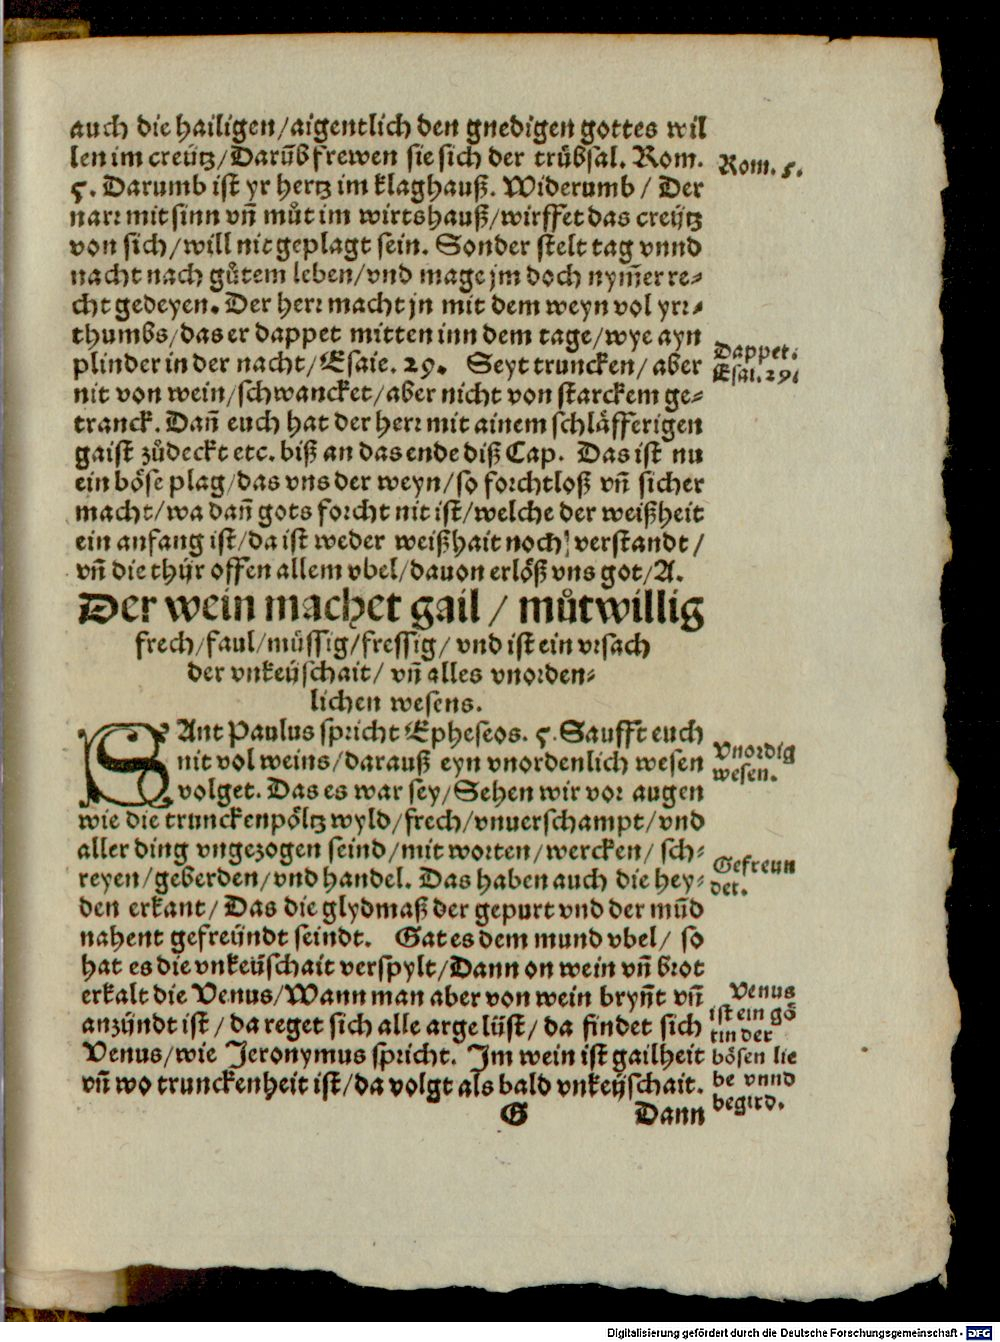 auch die hailigen/aigentlich den gnedigen gottes wil
len im creütz/Darũb frewen sie sich der trübsal. Rom.
5. Darumb ist yr hertz im klaghauß. Widerumb / Der
narr mit sinn vñ můt im wirtshauß/wirffet das creütz
von sich/will nit geplagt sein. Sonder stelt tag vnnd
nacht nach gůtem leben/vnd mage jm doch nym̃er re-
cht gedeyen. Der herr macht jn mit dem weyn vol yrr-
thumbs/das er dappet mitten inn dem tage/wye ayn
plinder in der nacht/Esaie. 29. Seyt truncken/ aber
nit von wein/schwancket/aber nicht von starckem ge-
tranck. Dañ euch hat der herr mit ainem schläfferigen
gaist zůdeckt etc. biß an das ende diß Cap. Das ist nu
ein böse plag/das vns der weyn/so forchtloß vñ sicher
macht/wa dañ gots forcht nit ist/welche der weißheit
ein anfang ist/da ist weder weißhait noch verstandt/
vñ die thür offen allem vbel/dauon erlöß vns got/A.
Rom. 5.
Dappet.
Esai. 29.
Der wein machet gail / můtwillig
frech/faul/müssig/fressig/ vnd ist ein vrsach
der vnkeüschait/ vñ alles vnorden-
lichen wesens.
SAnt Paulus spricht Epheseos. 5. Saufft euch
nit vol weins/darauß eyn vnordenlich wesen
volget. Das es war sey/Sehen wir vor augen
wie die trunckenpöltz wyld/frech/vnuerschampt/vnd
aller ding vngezogen seind/mit worten/wercken/ sch-
reyen/geberden/vnd handel. Das haben auch die hey-
den erkant/ Das die glydmaß der gepurt vnd der mũd
nahent gefreündt seindt. Gat es dem mund vbel/ so
hat es die vnkeüschait verspylt/Dann on wein vñ brot
erkalt die Venus/Wann man aber von wein bryñt vñ
anzündt ist/ da reget sich alle arge lüst/ da findet sich
Venus/wie Jeronymus spricht. Im wein ist gailheit
vñ wo trunckenheit ist/da volgt als bald vnkeüschait.
Vnordig
wesen.
Gefreun
det.
Venus
ist ein gö
tin der
bösen lie
be vnnd
begird.
G Dann
Digitalisierung gefördert durch die Deutsche Forschungsgemeinschaft - DFG